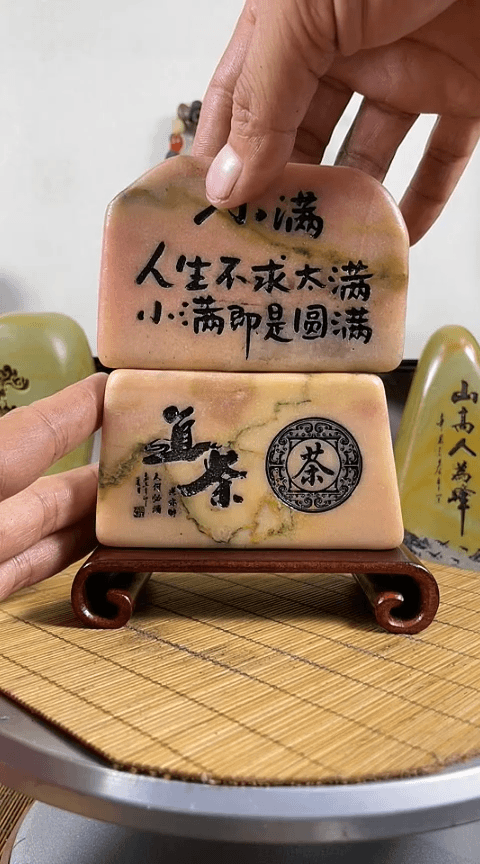 小满
人生不求太满
小满即是圆满
道茶
茶
山高人為峰